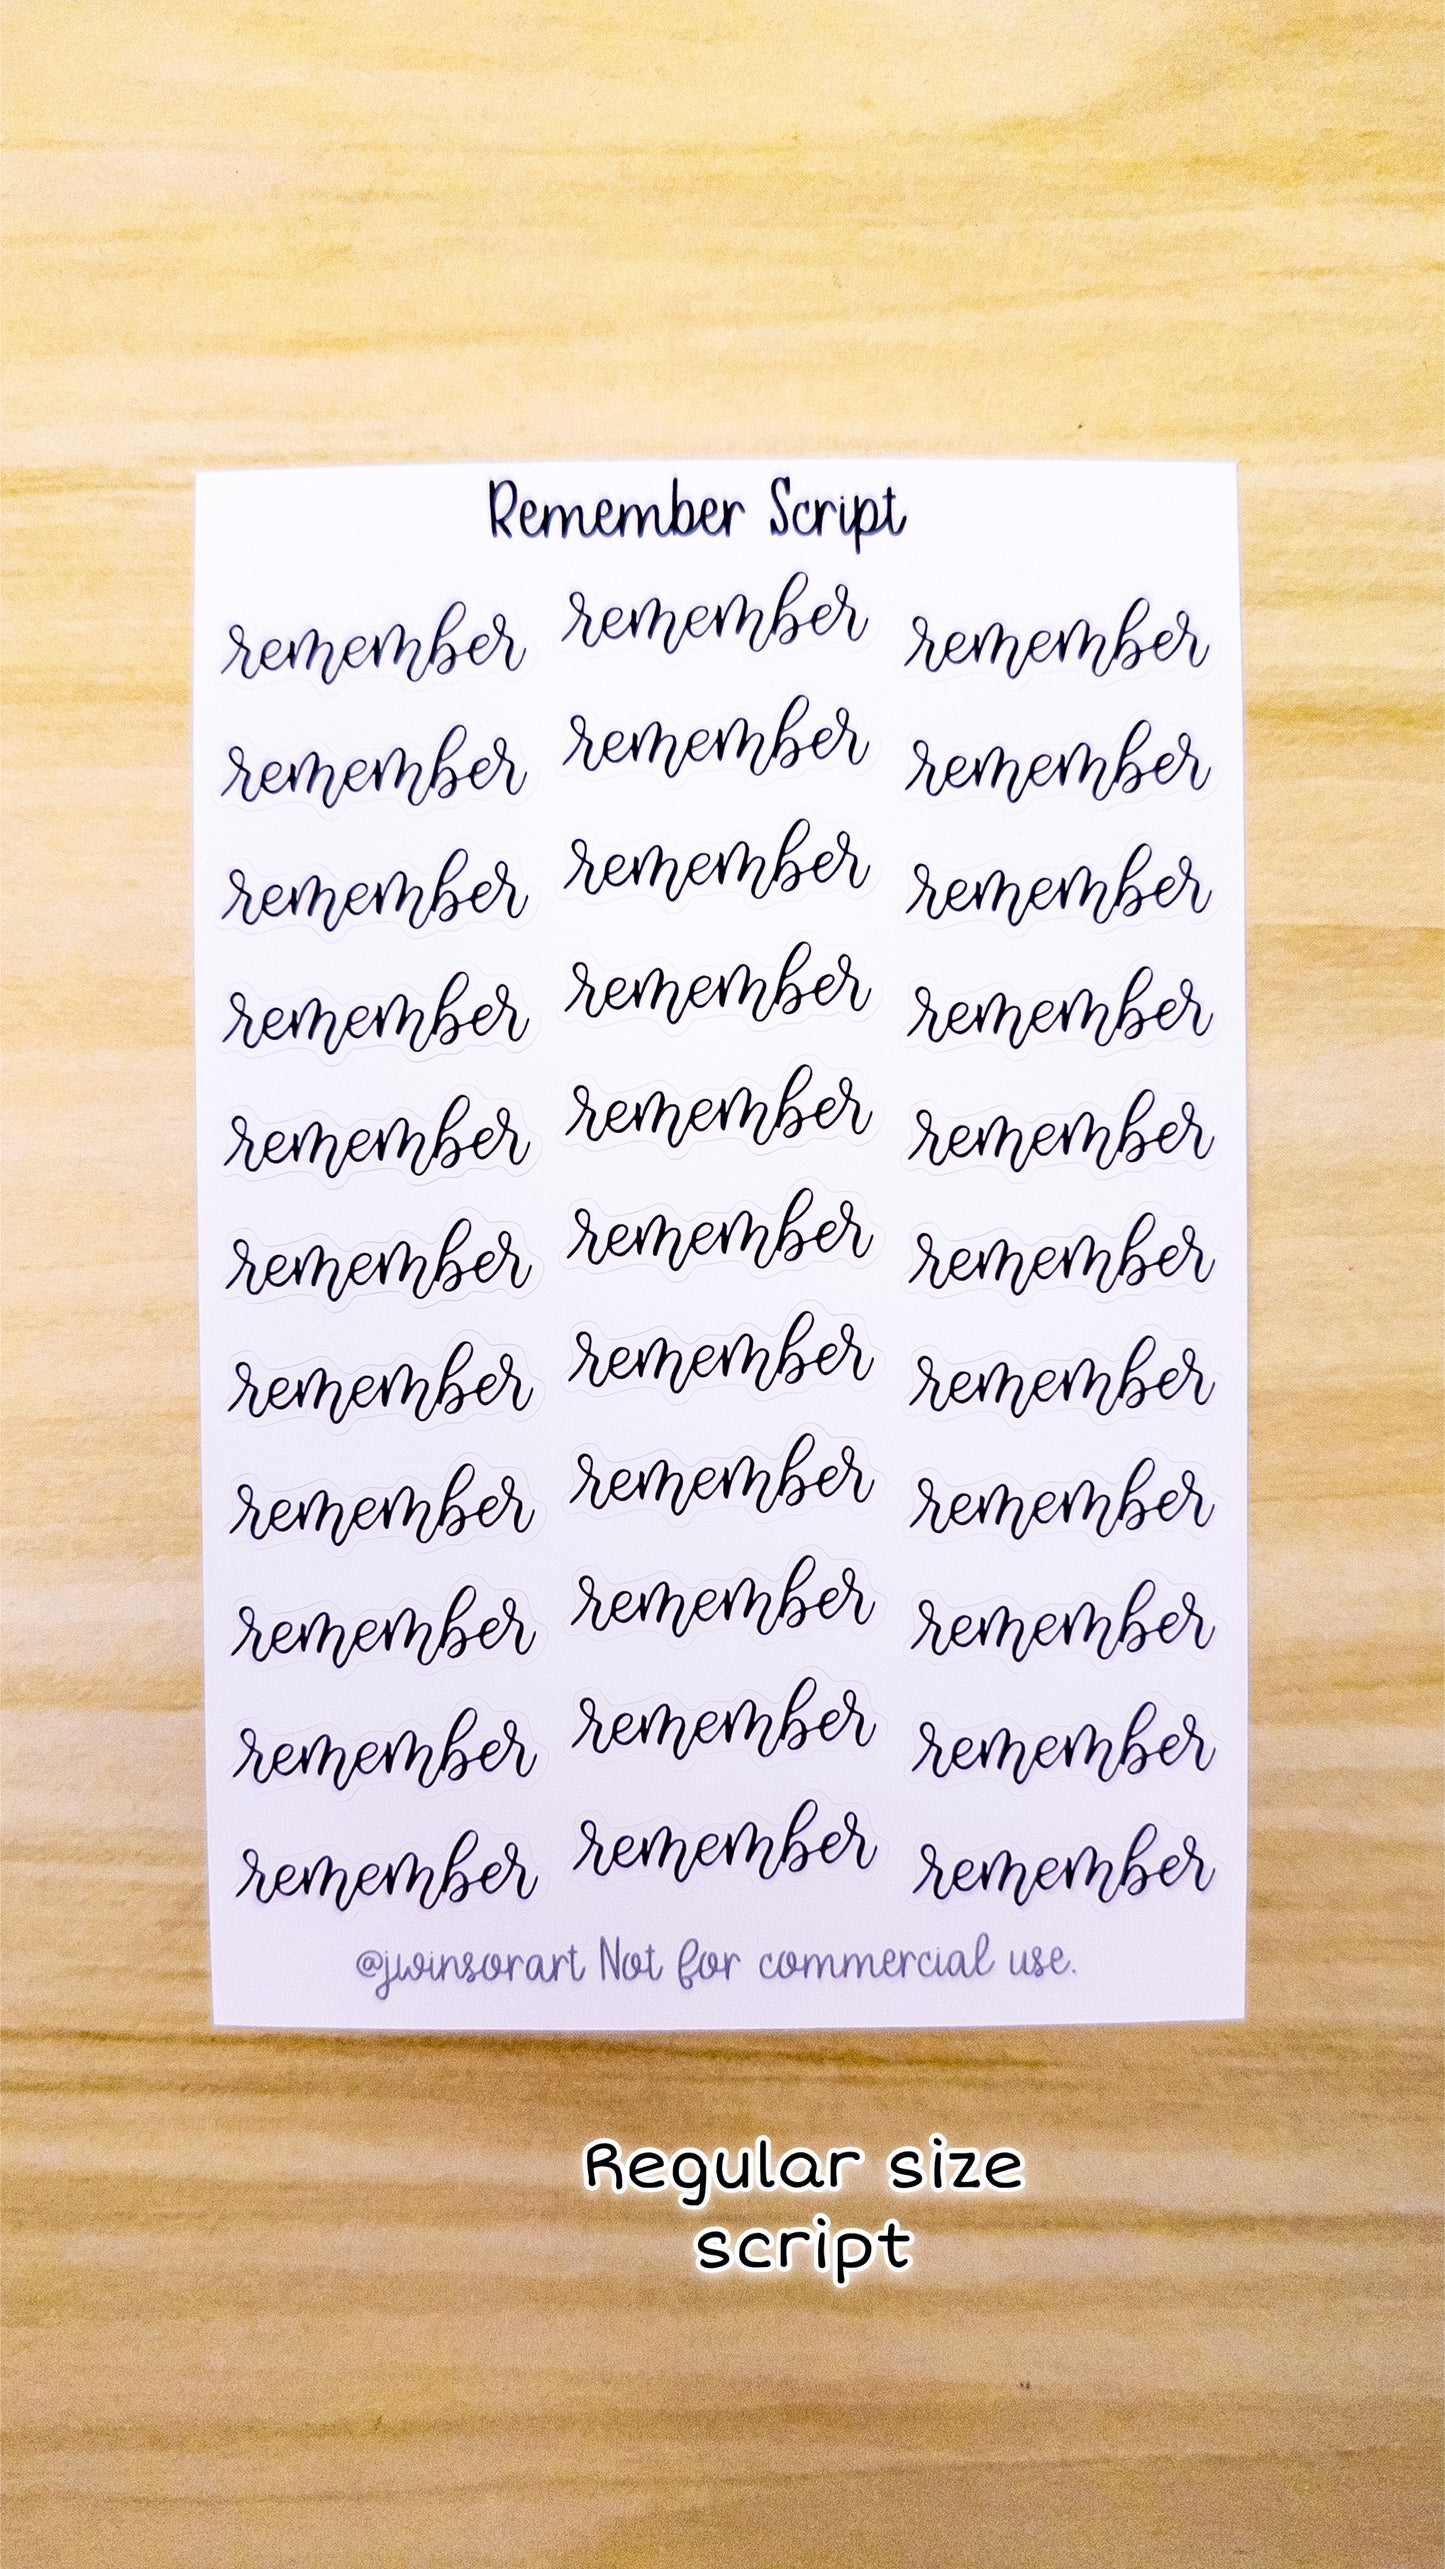 Remember Script
remember remember remember
remember remember remember
remember remember remember
remember remember remember
remember remember remember
remember remember remember
remember remember remember
remember remember remember
remember remember remember
remember remember remember
remember remember remember
@jwinsorart Not for commercial use.
Regular size
script